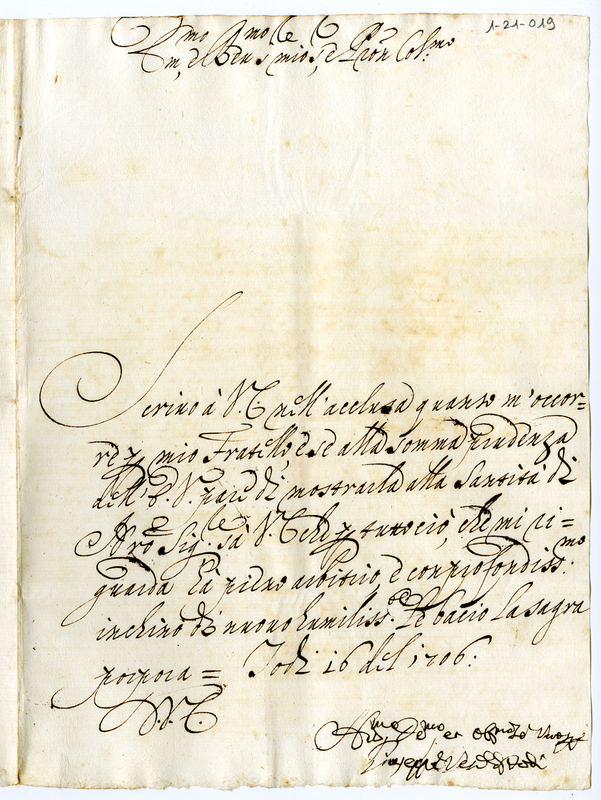 1-21-019
Em.mo
Sig.r e Pron Col.mo
Scrivo à V. E. nell'acclusa quanto m'occor=
re p mio Fratello, e se alla somma prudenza
dell'E. V. pare di mostrarla alla Santità di
N.ro Sig.re sà V. E. che p tuttociò, che mi ri=
guarda hà pieno arbitrio, e con profondiss.mo
inchino di nuovo humiliss.te Le bacio La sagra
porpora = Todi 16 del 1706:
D. V. E.